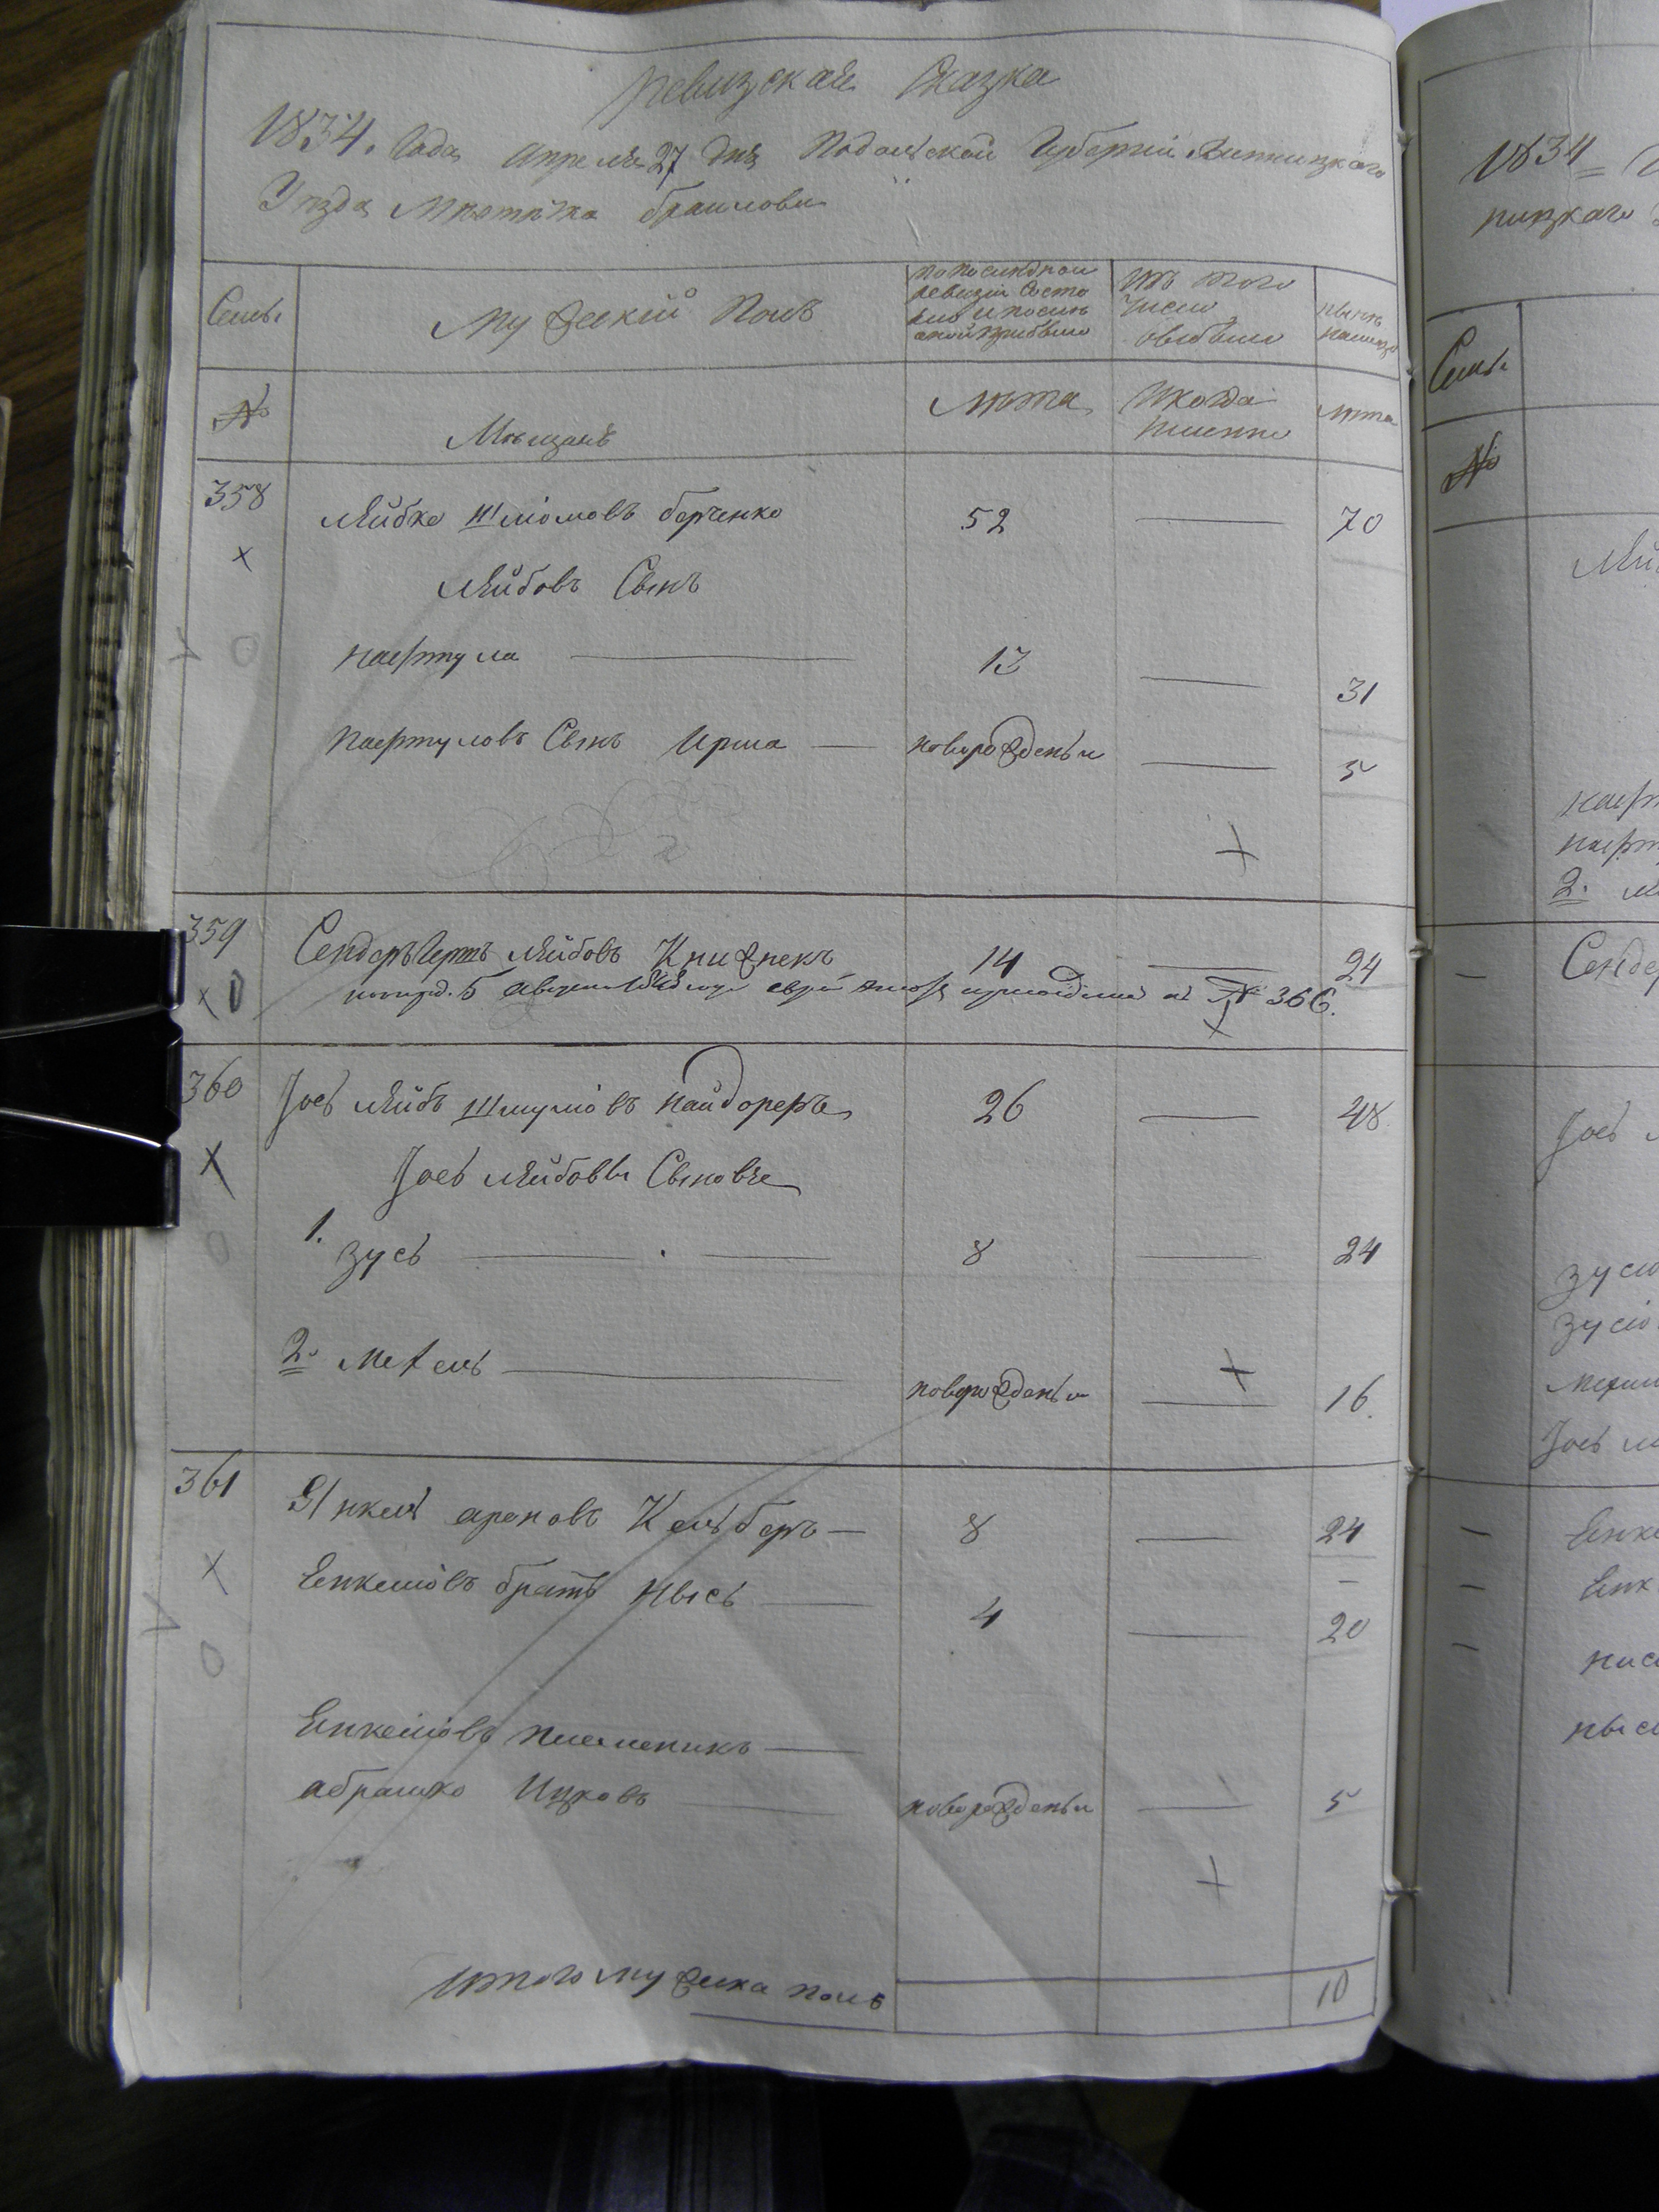 Ревизская Сказка
1834. Года Апреля 27 дня Подольской Губернии Винницкаго
Уезда Местечка Браилова
Семьи
Мужеский Полъ
По последней
ревизии состо
яло и после
оной прибыло
Изъ того
числа
выбыло
ныне
налицо
№
Мещане
Лета
Когда
именно
лета
358
Лейбко Шліомовъ Берченко 52 70
Лейбовъ Сынъ
Нафтула 13 31
Нафтуловъ Сынъ Ирша новорожденъи 5
359
Сендеръ Лейбовъ Книжнекъ 14 24
5 августа № 366.
360
Іось Лейбъ Шмуліовъ Найдореръ 26 48
Іось Лейбовы Сыновья
1. Зусь 8 24
2. Мехель новорожденъи 16
361
Янкель Ароновъ Кельберъ 8 24
Енкеліовъ братъ Нысь 4 20
Енкеліовъ племеникъ
Абрамко Ицковъ новорожденъи 5
Итого мужеска пола 10
1834
ницкаго
Семьи
№
Сендер
Іось
Зусіо
Зусіо
Іось
Енке
Енк